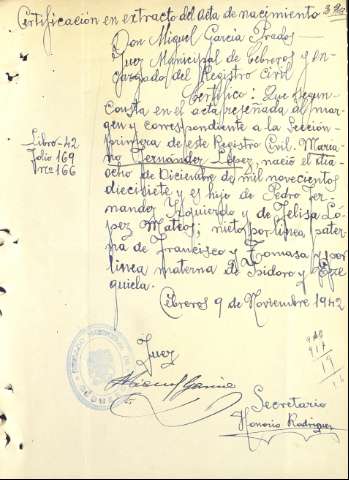 Certificación en extracto del acta de nacimiento
Don Miguel García Prados
Juez Municipal de Cebreros y en-
cargado del Registro Civil
Certifico: Que según
consta en el acta reseñada al mar-
gen y correspondiente a la Sección
primera de este Registro Civil. Maria-
no Fernández López, nació el dia
ocho de Diciembre de mil novecientos
diecisiete y es hijo de Pedro Fer-
nandez Izquierdo y de Felisa Ló-
pez Mateos; nieto por linea pater-
na de Francisco y Tomasa y por
linea materna de Isidoro y Eze-
quiela.
Cebreros 9 de Noviembre 1942
Libro-42
folio 169
nº 166
Juez
Miguel García
Secretario
Honorio Rodríguez